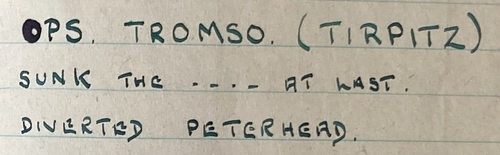 OPS. TROMSO. (TIRPITZ)
SUNK THE .... AT LAST.
DIVERTED PETERHEAD.